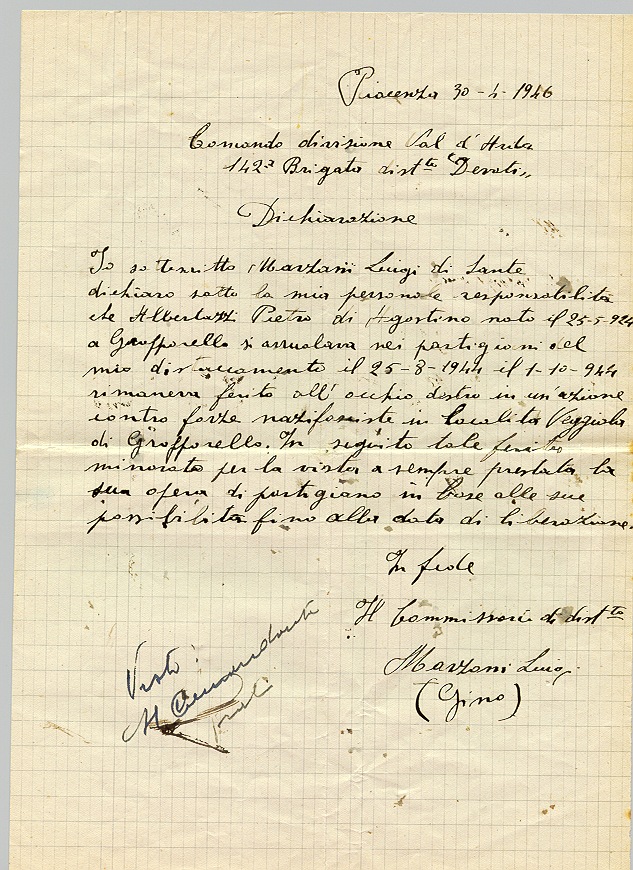 Piacenza 30-4-1946
Comando divisione Val d'Arda
142ª Brigata dist.to "Devoti"
Dichiarazione
Io sottoscritto Marzani Luigi di Sante
dichiaro sotto la mia personale responsabilità
che Albertazzi Pietro di Agostino nato il 25-5-924
a Gropparello si arruolava nei partigiani del
mio distaccamento il 25-8-1944 il 1-10-944
rimaneva ferito all'occhio destro in un'azione
contro forze nazifasciste in località Veggiola
di Gropparello. In seguito tale ferita
minorato per la vista a sempre prestata la
sua opera di partigiano in base alle sue
possibilità fino alla data di liberazione.
In fede
Il Commissario di dist.to
Marzani Luigi
(Gino)
Visto:
Il Comandante